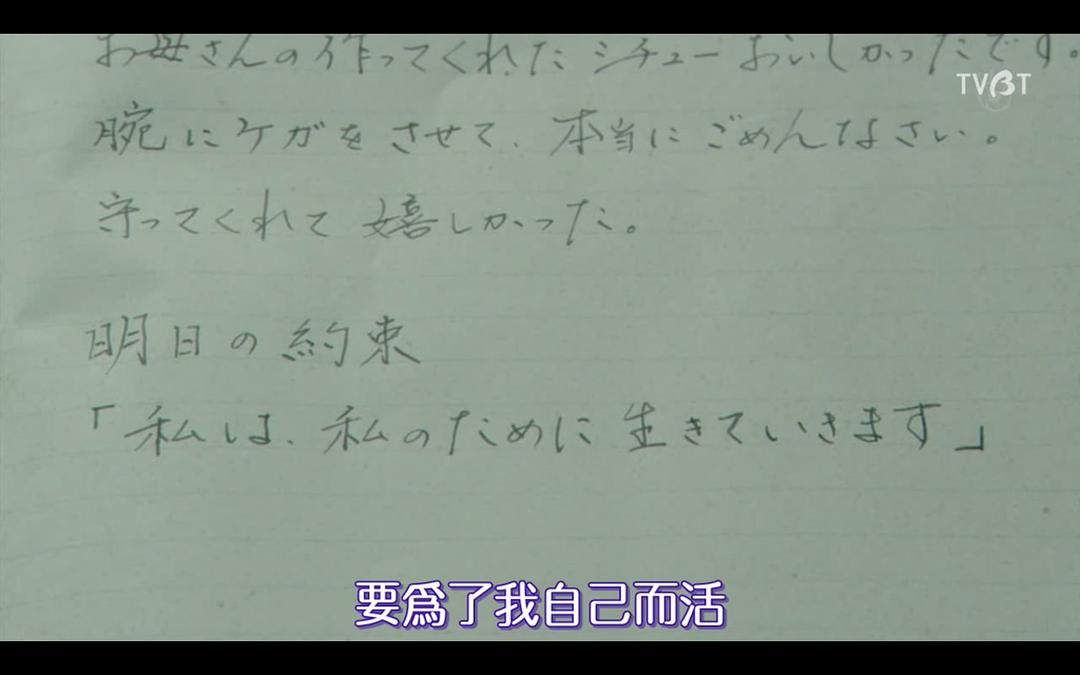 お母さんの作ってくれたシチューおいしかったです。
TVBT
腕にケガをさせて、本当にごめんなさい。
守ってくれて嬉しかった。
明日の約束
「私は、私のために生きていきます」
要爲了我自己而活